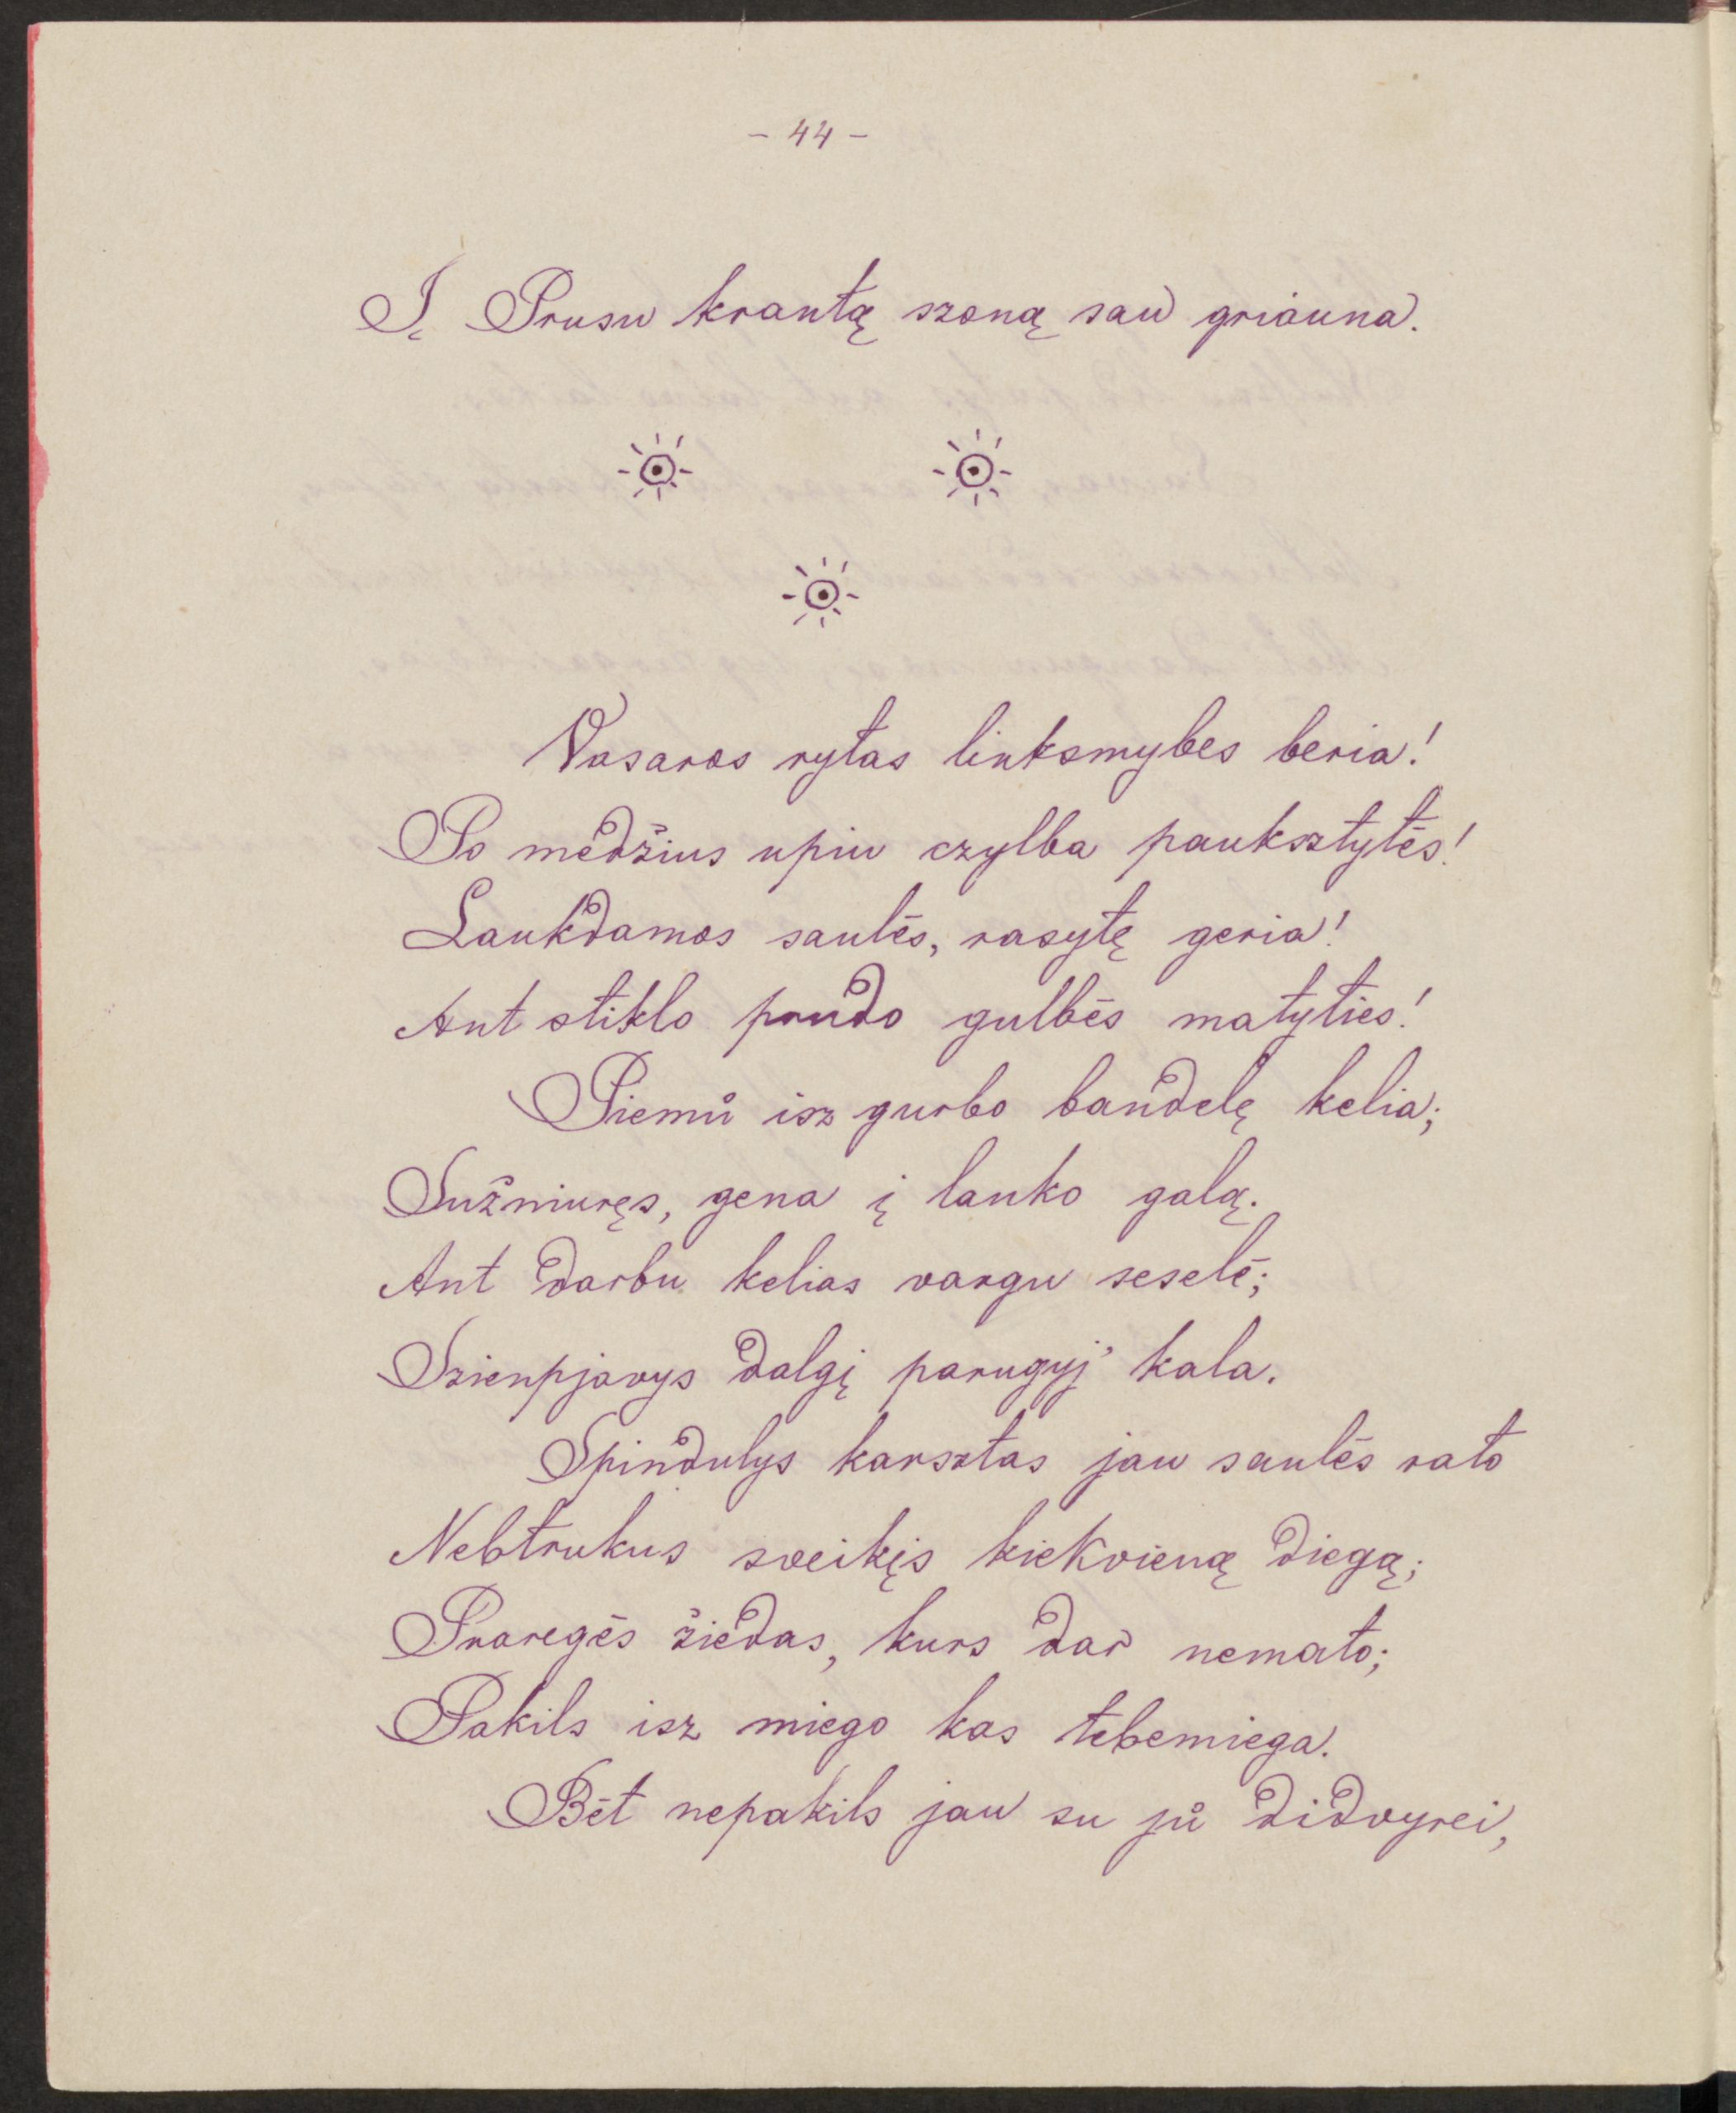 - 44 -
Į Prusu krantą szoną sau griauna.
Vasaros rytas linksmybes beria!
Po mėdžius upiu czylba pauksztytės!
Laukdamos saulės, rasytę geria!
Ant stiklo prudo gulbės matyties!
Piemů isz gurbo bandelę kelia;
Sužniuręs, gena į lauko galą.
Ant darbu kelias vargu seselė;
Szienpjavys dalgį parugyj' kala.
Spindulys karsztas jau saulės rato
Nebtrukus sveikįs kiekvieną diegą;
Praregės žiedas, kurs dar nemato;
Pakils isz miego kas tebemiega.
Bėt nepakils jau su jů didvyrei,